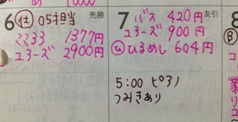 6 仕 05担当 先勝
ココ33 1377円
ユヨーズ 2900円
7 バス 420円 友引
ユヨーズ 900円
ひ ひるめし 604円
5:00 ピアノ
つみきあり
8